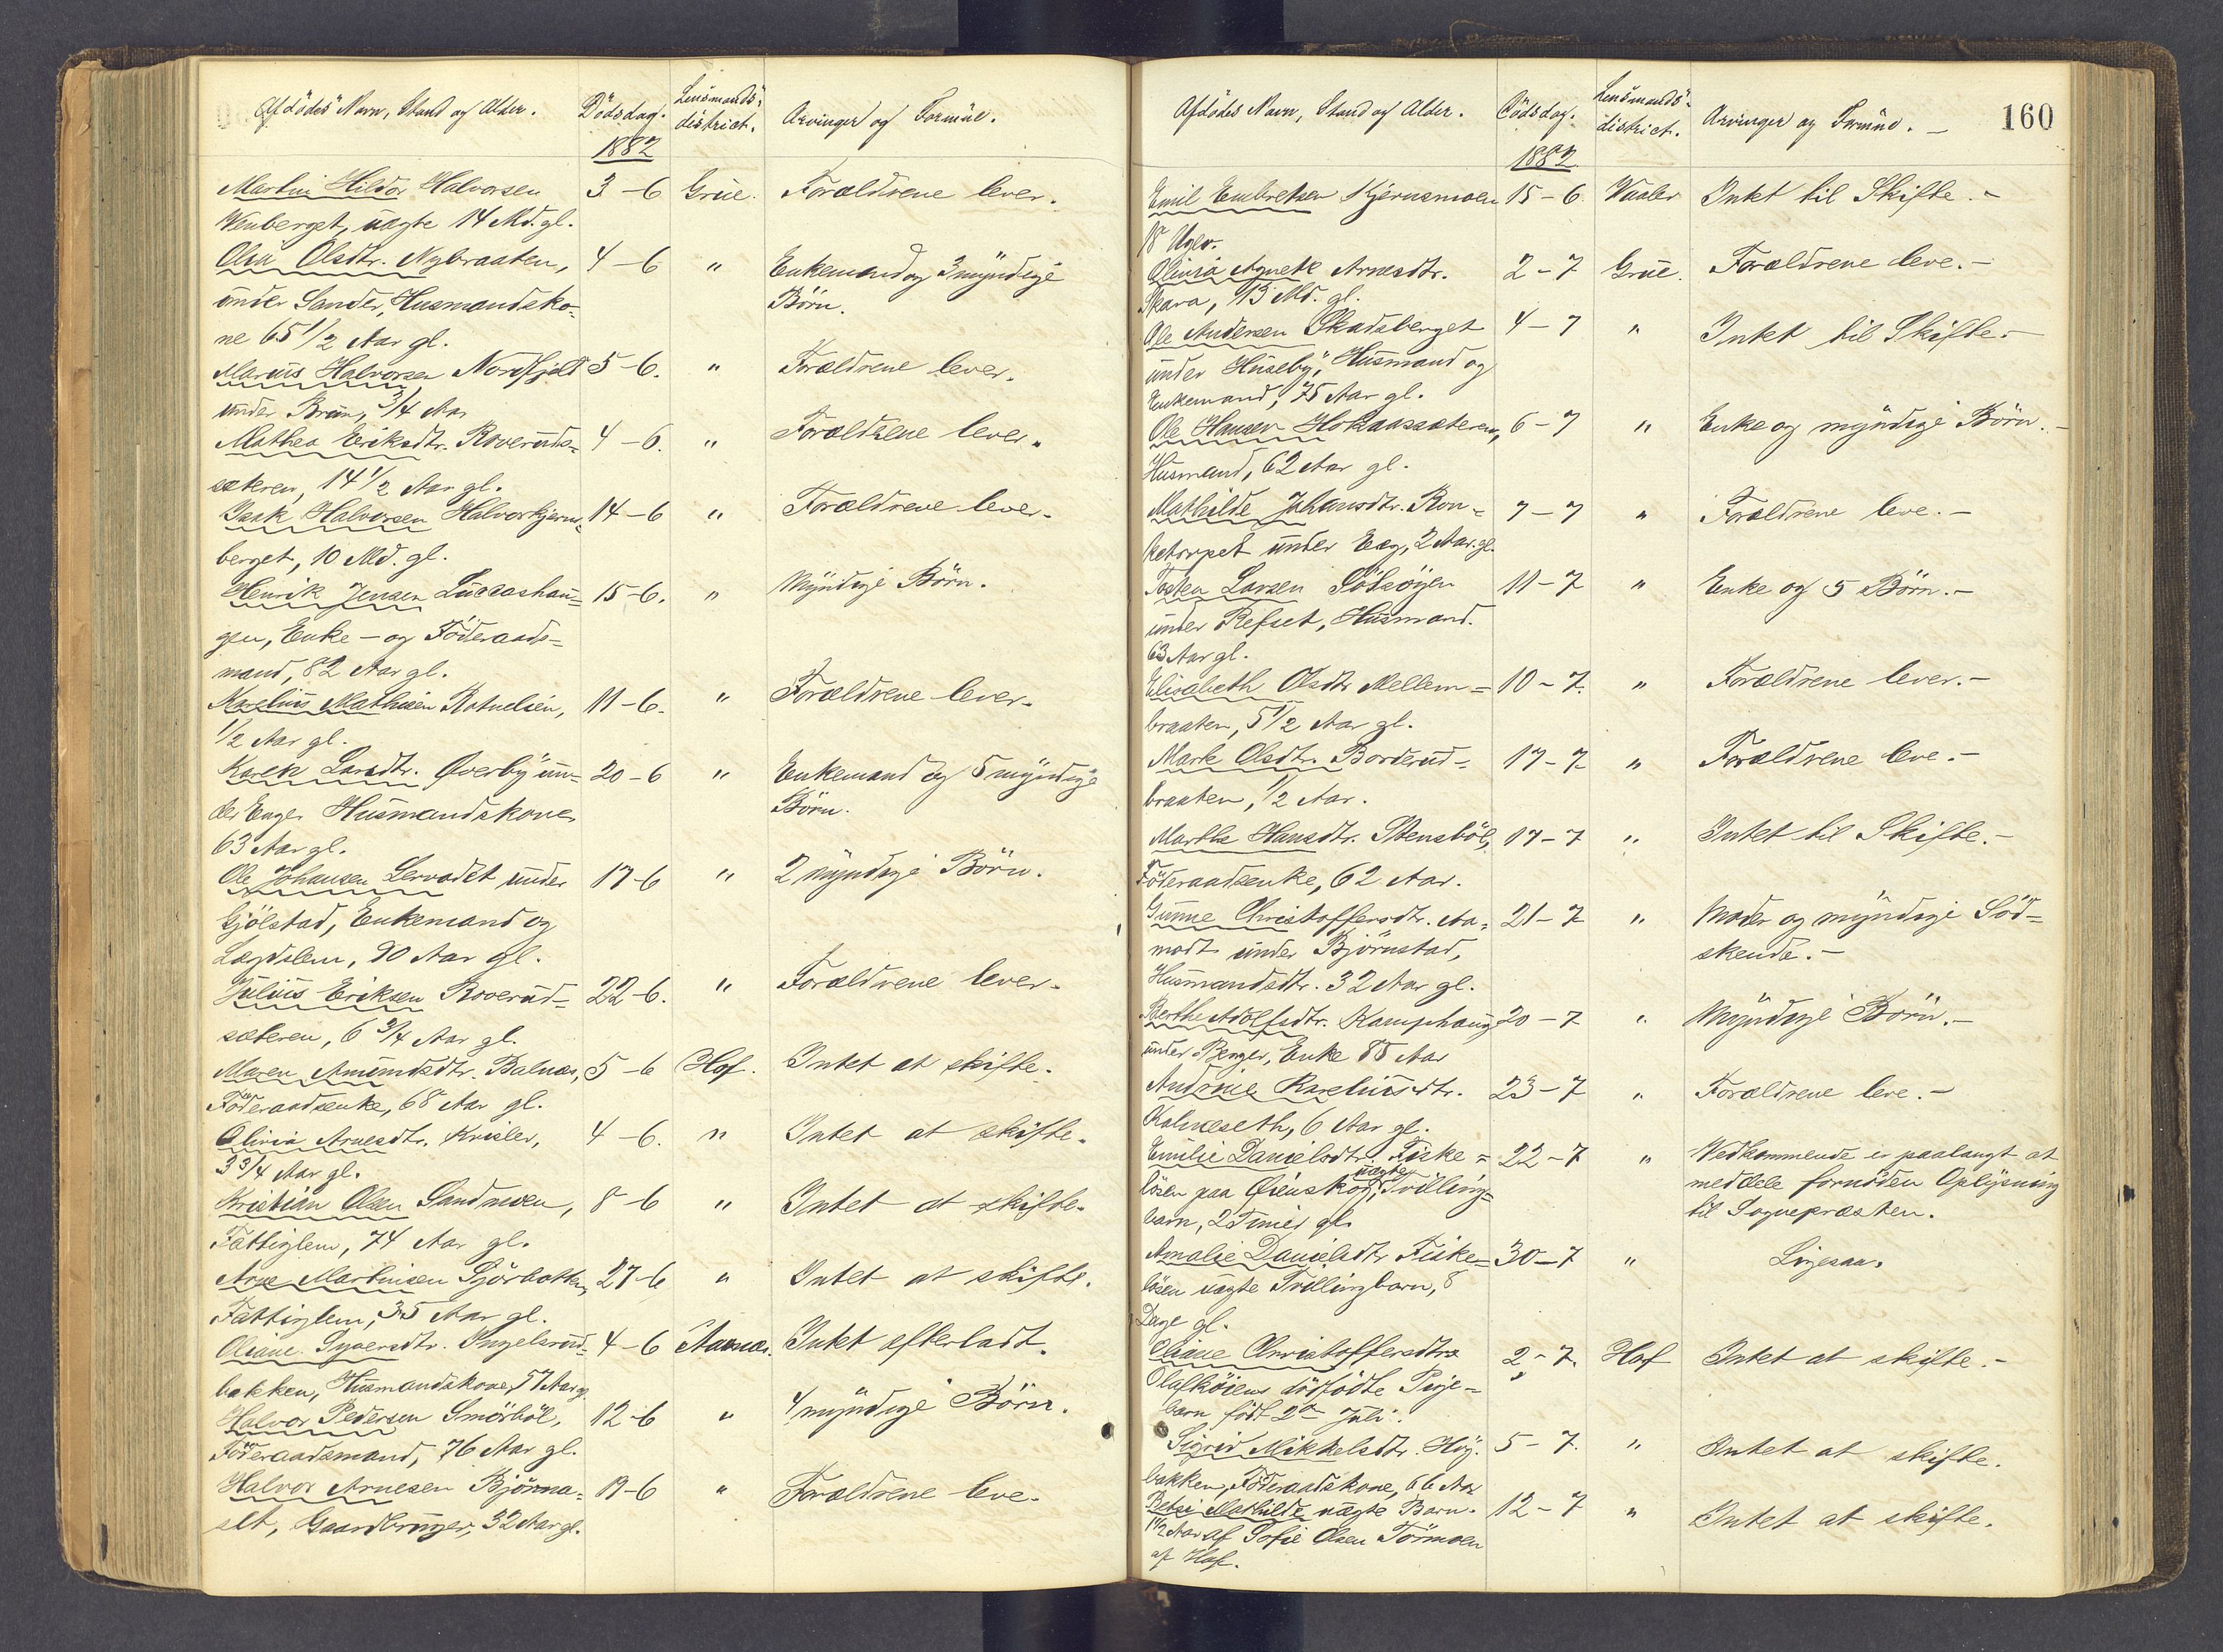 Afdødes Navn, Stand og Alder. Dødsdag. Lensmands- district. Arvinger og Formue.
1882
Martin Hildor Halvorsen 3-6 Grue. Forældrene lever.
Venberget, uægte 14 Md. gl.
Olea Olsdtr. Nybraaten, 4-6 " Enkemand og 3 myndige
under Sander, Husmandsko- Börn.
ne 65 1/2 Aar gl.
Marius Halvorsen Nordfjeld 5-6. " Forældrene lever.
under Brun, 3/4 Aar
Mathea Eriksdtr. Roveruds- 4-6. " Forældrene lever.
sæteren, 14 1/2 Aar gl.
Isak Halvorsen Halvorkjerns- 14-6 " Forældrene lever.
berget, 10 Md. gl.
Henrik Jensen Lucashau- 15-6. " Myndige Börn.
gen, Enke- og Föderaads-
mand, 82 Aar gl.
Karelius Mathisen Rotnelien, 11-6. " Forældrene lever.
1/2 Aar gl.
Karen Larsdtr. Øverby un- 20-6 " Enkemand og 5 myndige
der Enger Husmandskone Börn.
63 Aar gl.
Ole Johansen Lervadet under 17-6 " 2 myndige Börn.
Gjölstad, Enkemand og
Lægdslem, 90 Aar gl.
Julius Eriksen Roverud- 22-6. " Forældrene lever.
sæteren, 6 3/4 Aar gl.
Maren Amundsdtr. Balnæs, 5-6 Hof. Intet at skifte.
Föderaadsenke, 68 Aar gl.
Olivia Arnesdtr. Krisler, 4-6. " Intet at skifte.
3 3/4 Aar gl.
Kristian Olsen Sandmoen, 8-6 " Intet at skifte.
Fattiglem, 74 Aar gl.
Arne Martinsen Sjörbotten, 27-6 " Intet at skifte.
Fattiglem, 35 Aar gl.
Oliane Syversdtr. Ingelsrud- 4-6 Aasnæs. Intet efterladt.
bakken, Husmandskone, 57 Aar gl.
Halvor Pedersen Smörböl, 12-6 " 4 myndige Börn.
Föderaadsmand, 76 Aar gl.
Halvor Arnesen Björnna- 19-6 " Forældrene leve.
slt, Gaardbruger, 32 Aar gl.
160
Afdødes Navn, Stand og Alder. Dødsdag. Lensmands- district. Arvinger og Formue.
1882
Emil Embretsen Kjernsmoen 15-6. Vaaler Intet til Skifte.
18 Uger.
Olivia Agnete Arnesdtr. 2-7 Grue. Forældrene leve.
Skara, 13 Md. gl.
Ole Andersen Skadsberget 4-7 " Intet til Skifte.
under Huseby, Husmand og
Enkemand, 75 Aar gl.
Ole Hansen Hokaassæteren, 6-7 " Enke og myndige Börn.
Husmand, 62 Aar gl.
Mathilde Johansdtr. Ron- 7-7 " Forældrene leve.
ketorpet under Eeg, 2 Aar gl.
Tosten Larsen Sötsöyen 11-7 " Enke og 5 Börn.
under Refset, Husmand.
63 Aar gl.
Elisabeth Olsdtr Mellem- 10-7. " Forældrene lever.
braaten, 5 1/2 Aar gl.
Marte Olsdtr. Borderud- 17-7 " Forældrene leve.
braaten, 1/2 Aar.
Marthe Hansdtr. Stensböl, 17-7 " Intet til Skifte.
Föderaadsenke, 62 Aar.
Gunne Christoffersdtr. Aa- 21-7 " Moder og myndige Söd-
modt under Björnstad, skende.
Husmandsdtr. 32 Aar gl.
Berthe Adolfsdtr. Kamphaug 20-7 " Myndige Börn.
under Berger, Enke 85 Aar
Andrine Kareliusdtr. 23-7 " Forældrene leve.
Kalneseth, 6 Aar gl.
Emilie Danielsdtr. Fiske- 22-7 " Vedkommende er paalangt at
lösen paa Öienskog, uægte Tvilling- meddele fornöden Oplysning
barn, 2 Timer gl. til Sognepræsten.
Amalie Danielsdtr Fiske- 30-7 " Ligesaa.
lösen uægte Tvillingbarn, 8
Dage gl.
Oliane Christoffersdtrs 2-7. Hof Intet at skifte.
Olafköiens dödfödte Pige-
barn, född 2den Juli.
Sigrid Mikkelsdtr. Hög- 5-7. " Intet at skifte.
bakken, Föderaadskone, 66 Aar
Betzi Mathilde uægte Barn. 12-7 " Intet at skifte.
1 1/2 Aar af Sofie Olsen Törmoen
af Hof.